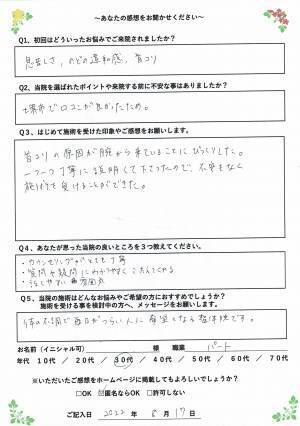 ～あなたの感想をお聞かせください～
Q1、初回はどういったお悩みでご来院されましたか？
息苦しさ、のどの違和感、首コリ
Q2、当院を選ばれたポイントや来院する前に不安な事はありましたか？
堺市で口コミが良かったため。
Q3、はじめて施術を受けた印象やご感想をお願いします。
首コリの原因が腕から来ていることにびっくりした。
一つ一つ丁寧に説明して下さったので、不安もなく
施術を受けることができた。
Q4、あなたが思った当院の良いところを3つ教えてください。
・カウンセリングがとても丁寧
・質問や疑問にわかりやすくこたえてくれる
Q5、当院の施術はどんなお悩みやご希望の方におすすめでしょうか？
施術を受ける事を検討中の方へ、メッセージをお願いします。
体の不調で毎日がつらい人に希望となる整体院です。
お名前（イニシャル可） 様 職業 パート
年代 10代 / 20代 / 30代 / 40代 / 50代 / 60代 / 70代
※いただいたご感想をホームページに掲載してもよろしいでしょうか？
□OK ☑匿名ならOK □許可しない
ご記入日 2022年 8月 17日